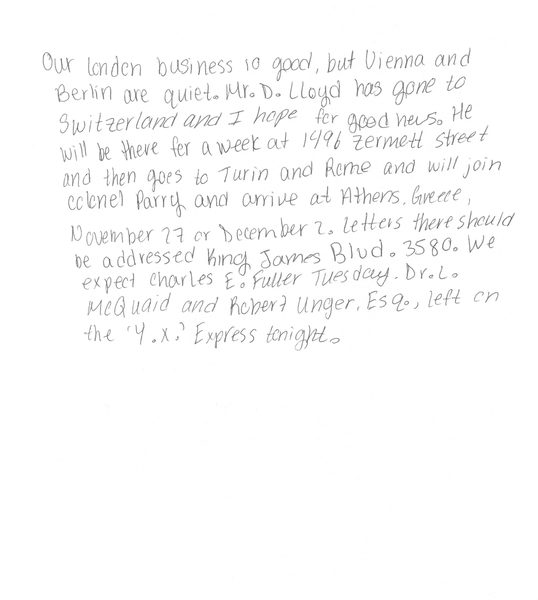 Our london business is good, but Vienna and
Berlin are quiet. Mr. D. Lloyd has gone to
Switzerland and I hope for good news. He
will be there for a week at 1496 Zermett street
and then goes to Turin and Rome and will join
colonel Parry and arrive at Athens, Greece,
November 27 or December 2. Letters there should
be addressed King James Blvd. 3580. We
expect Charles E. Fuller Tuesday. Dr. L.
McQuaid and Robert Unger, Esq., left on
the 'Y.X.' Express tonight.